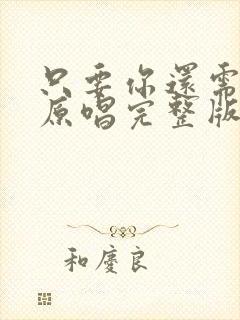 只要你還需
原唱完整版
和慶良